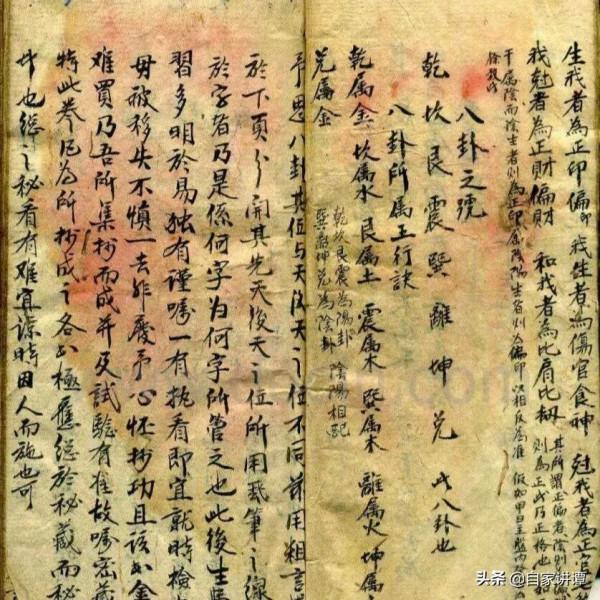 生我者為正印偏印 我生者為傷官食神 尅我者為正官
我尅者為正財偏財 和我者為比肩比刼
其所謂正偏者陰則
則為正或乃正格也
干屬陰而陰生者則為正印屬陰陽生者則為偏印 以相反為准 假如甲日主
八卦之號
乾 坎 艮 震 巽 離 坤 兑 此八卦也
八卦所属五行訣
乾属金 坎属水 艮属土 震属木 巽属木 離属火 坤属
兑属金
乾坎艮震為陽卦
巽離坤兑為陰卦 陰陽相配
予思八卦其位与天後天之位不同兹用粗言
於下頁分開其先天後天之位所用底筆之線
於字者乃是係何字為何字所管之也此後生
習多明於易独有謹嘱一有执看即宜就時檢
毋被移失不慎一去非廢予心怀抄功且該如金
难買乃吾所集抄而成并及試驗有准故嘱密
特此卷凡為所抄成之各如極應總於秘藏而秘
中也總之秘看有难宜諒時因人而施也可
头条 @自家讲谭